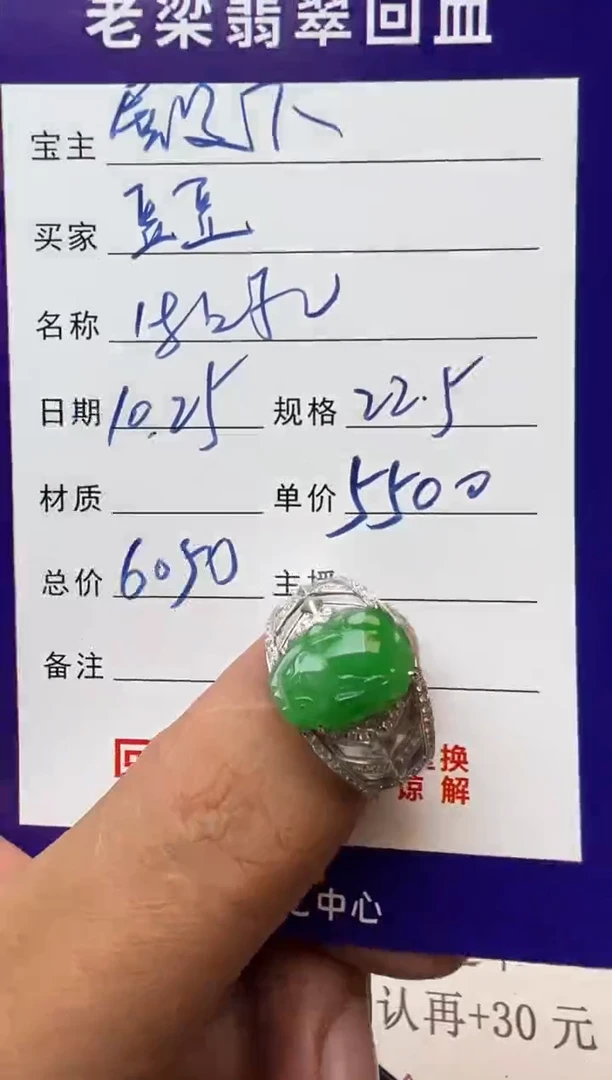 老梁翡翠回血
宝主
买家 豆豆
名称
日期 10.25 规格 22.5
材质 单价 5500
总价 6050 主播
备注
换
谅解
中心
认再+30元